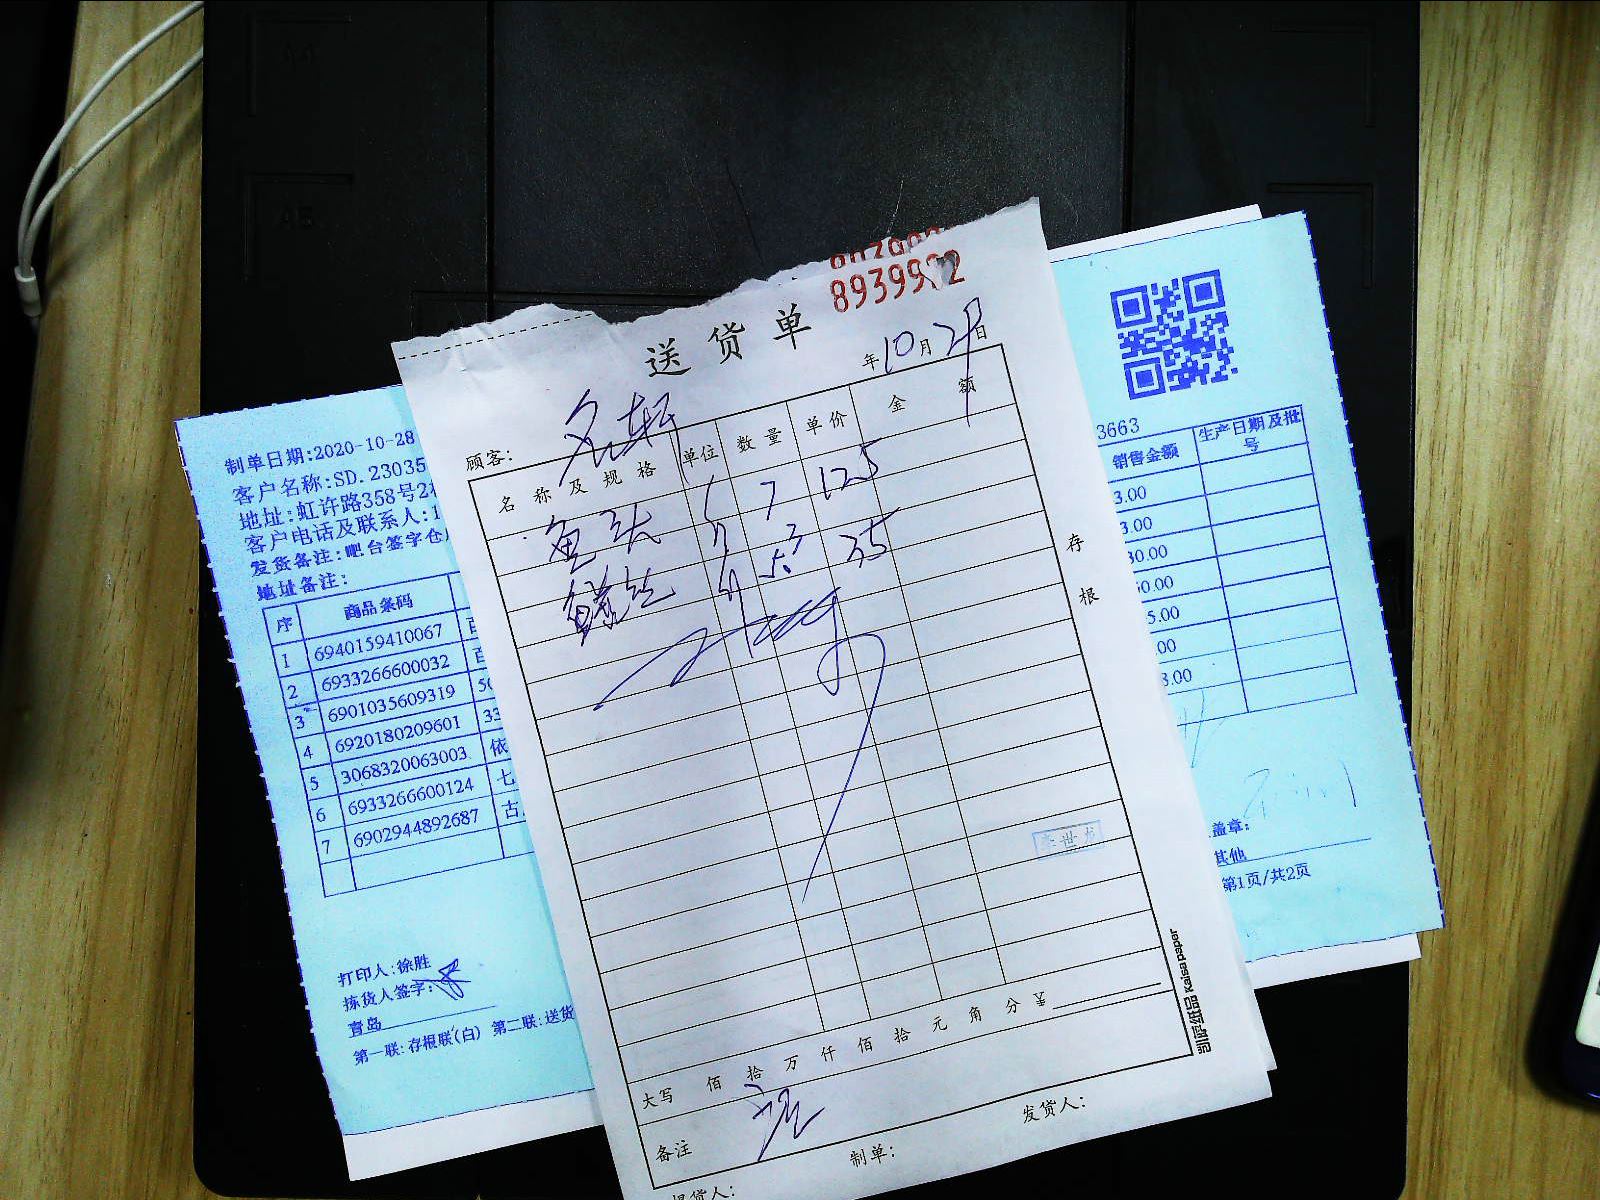 8939992
送货单
年10月29日
顾客：名轩
名称及规格 单位 数量 单价 金额
鱼头 7 125
鳝丝 35
存根
大写 佰 拾 万 仟 佰 拾 元 角 分 ¥
备注
制单：
发货人：
提货人：
凯萨纸品 Kaisa paper
制单日期:2020-10-28
客户名称:SD.23035
地址:虹许路358号2
客户电话及联系人:1
发货备注:吧台签字仓
地址备注:
序 商品条码
1 6940159410067
2 6933266600032
3 6901035609319 50
4 6920180209601 33
5 3068320063003 依
6 6933266600124 七
7 6902944892687 古
打印人:徐胜
拣货人签字:
青岛
第一联:存根联(白) 第二联:送货
3663
销售金额 生产日期及批号
3.00
3.00
30.00
50.00
5.00
.00
8.00
盖章:
其他
第1页/共2页